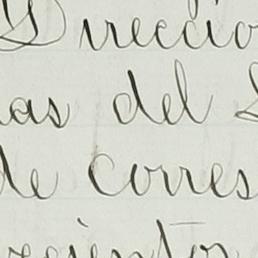 Direccio
as del
de Corres